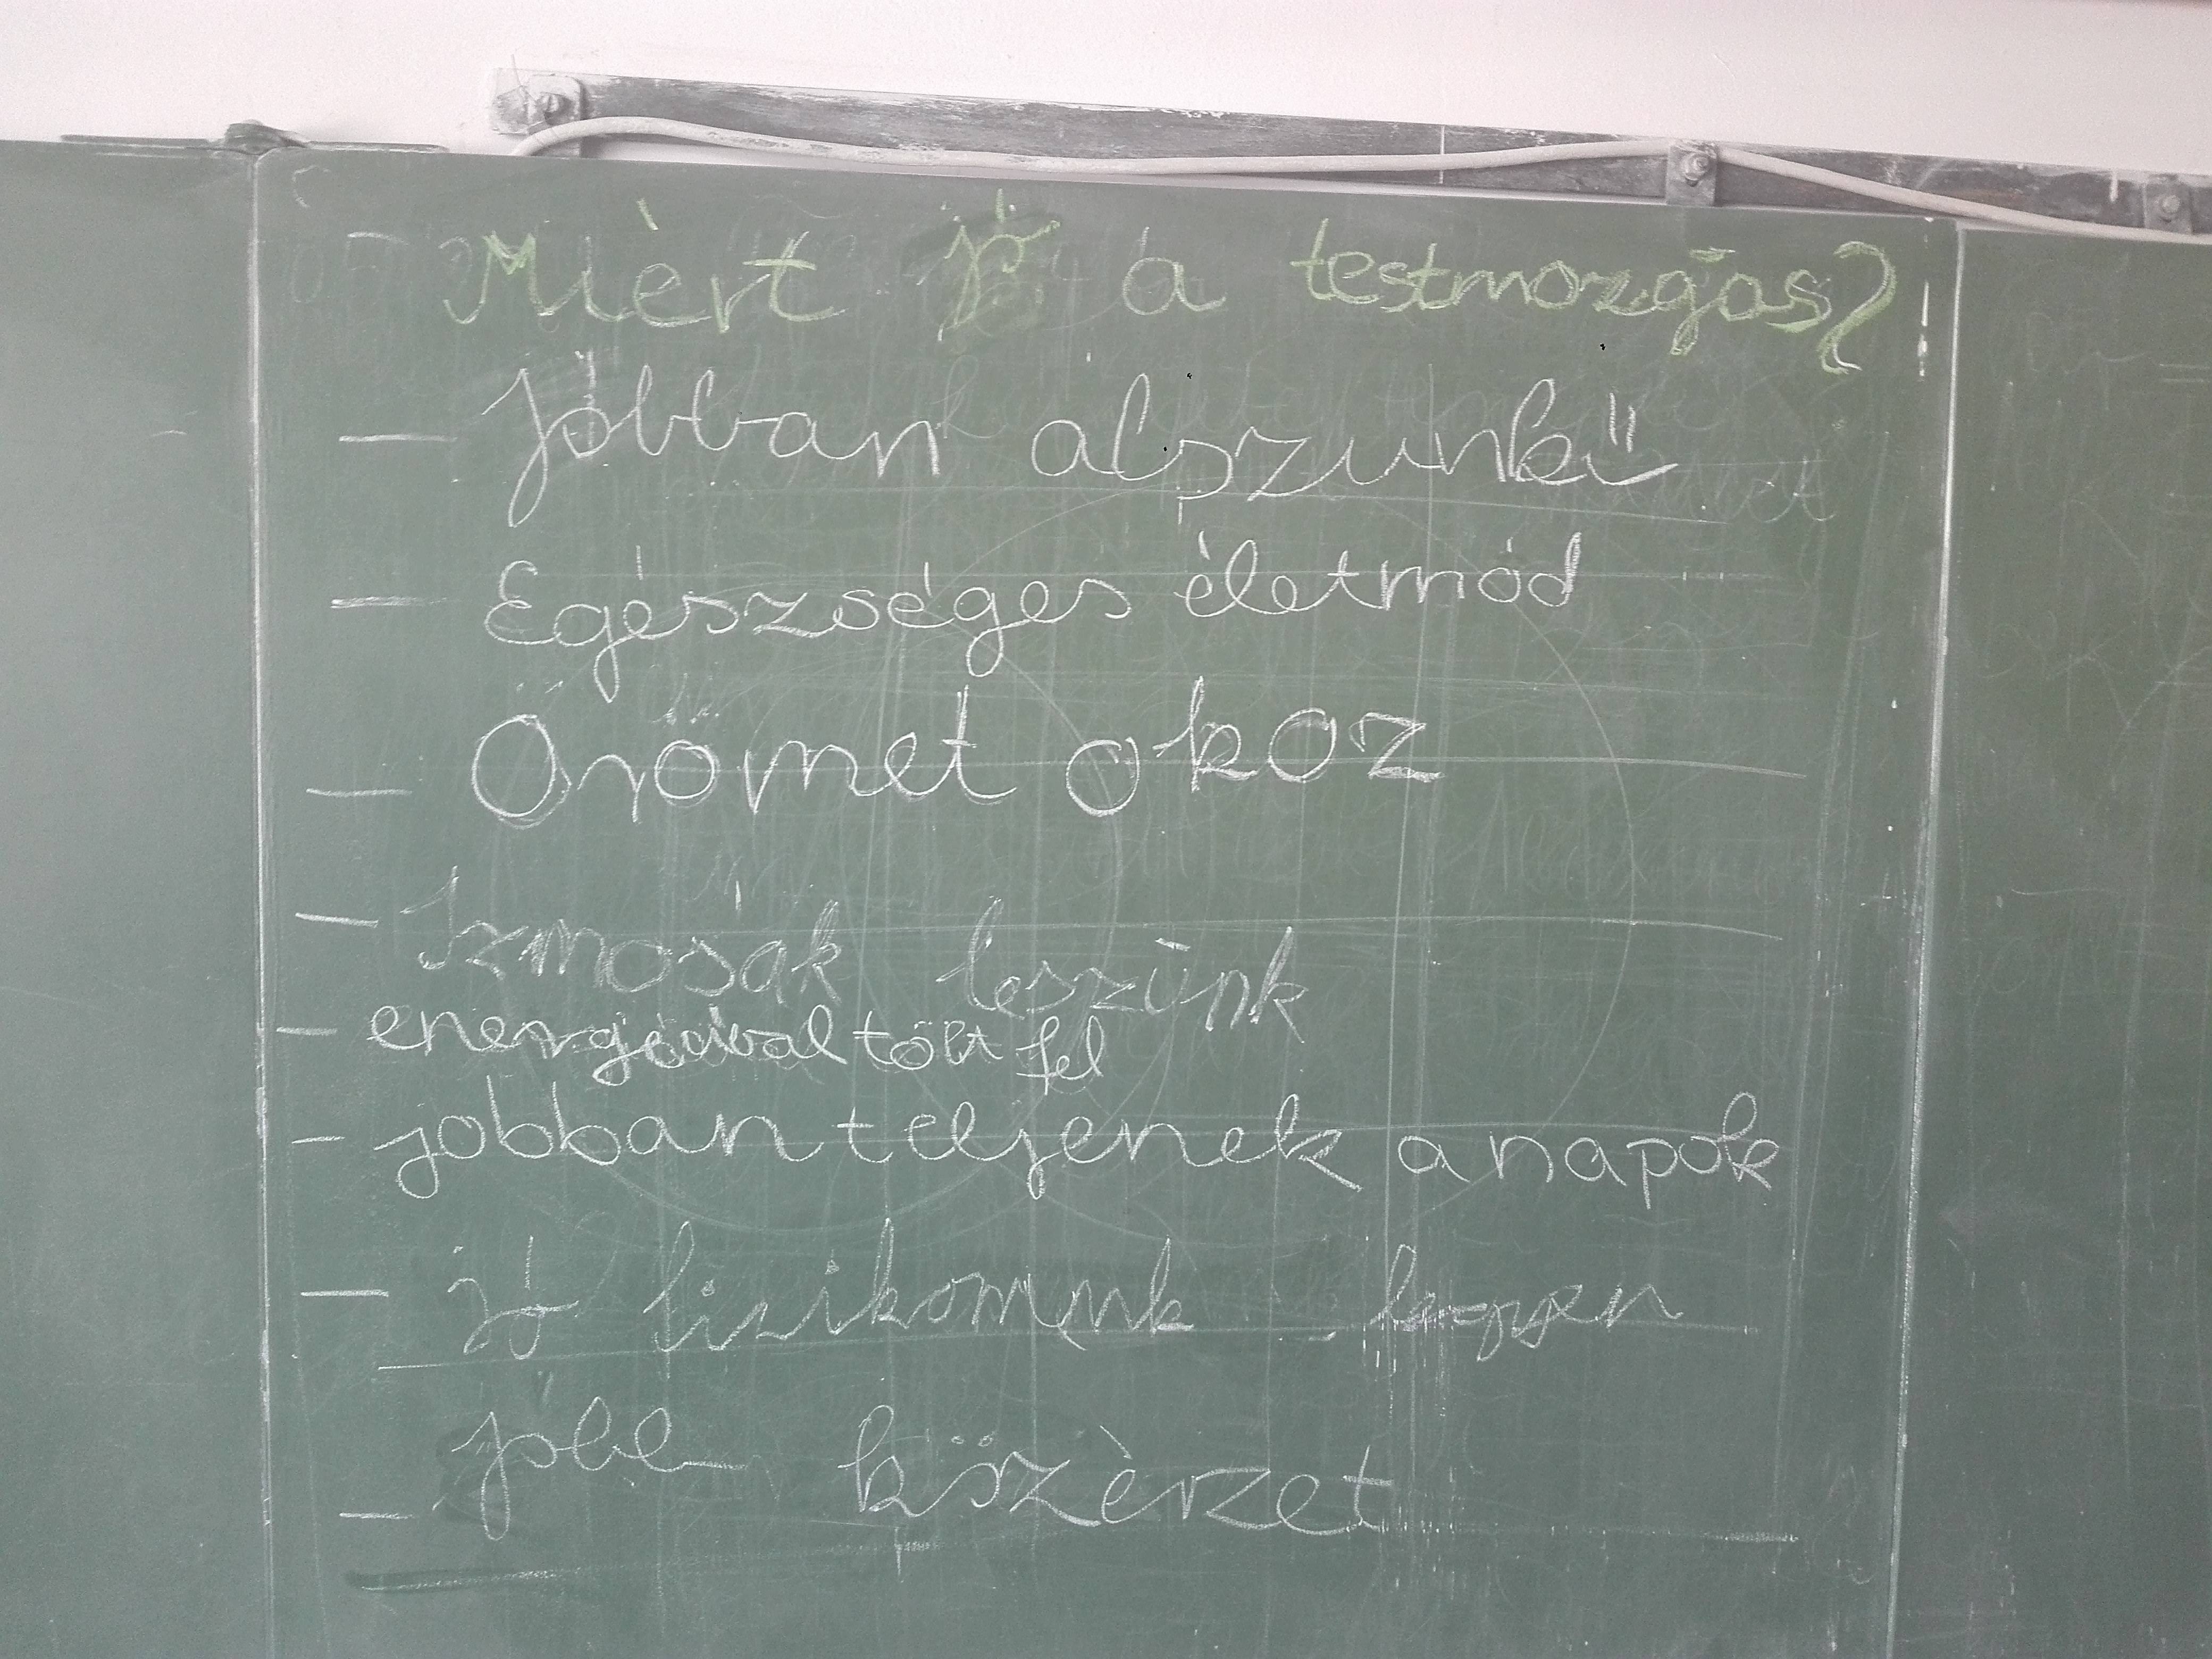 Miért jó a testmozgás?
– Jobban alszunk
– Egészséges életmód
– Örömet okoz
– Izmosak leszünk
– energiával tölt fel
– jobban teljenek a napok
– jó fizikomunk legyen
– jobb közérzet